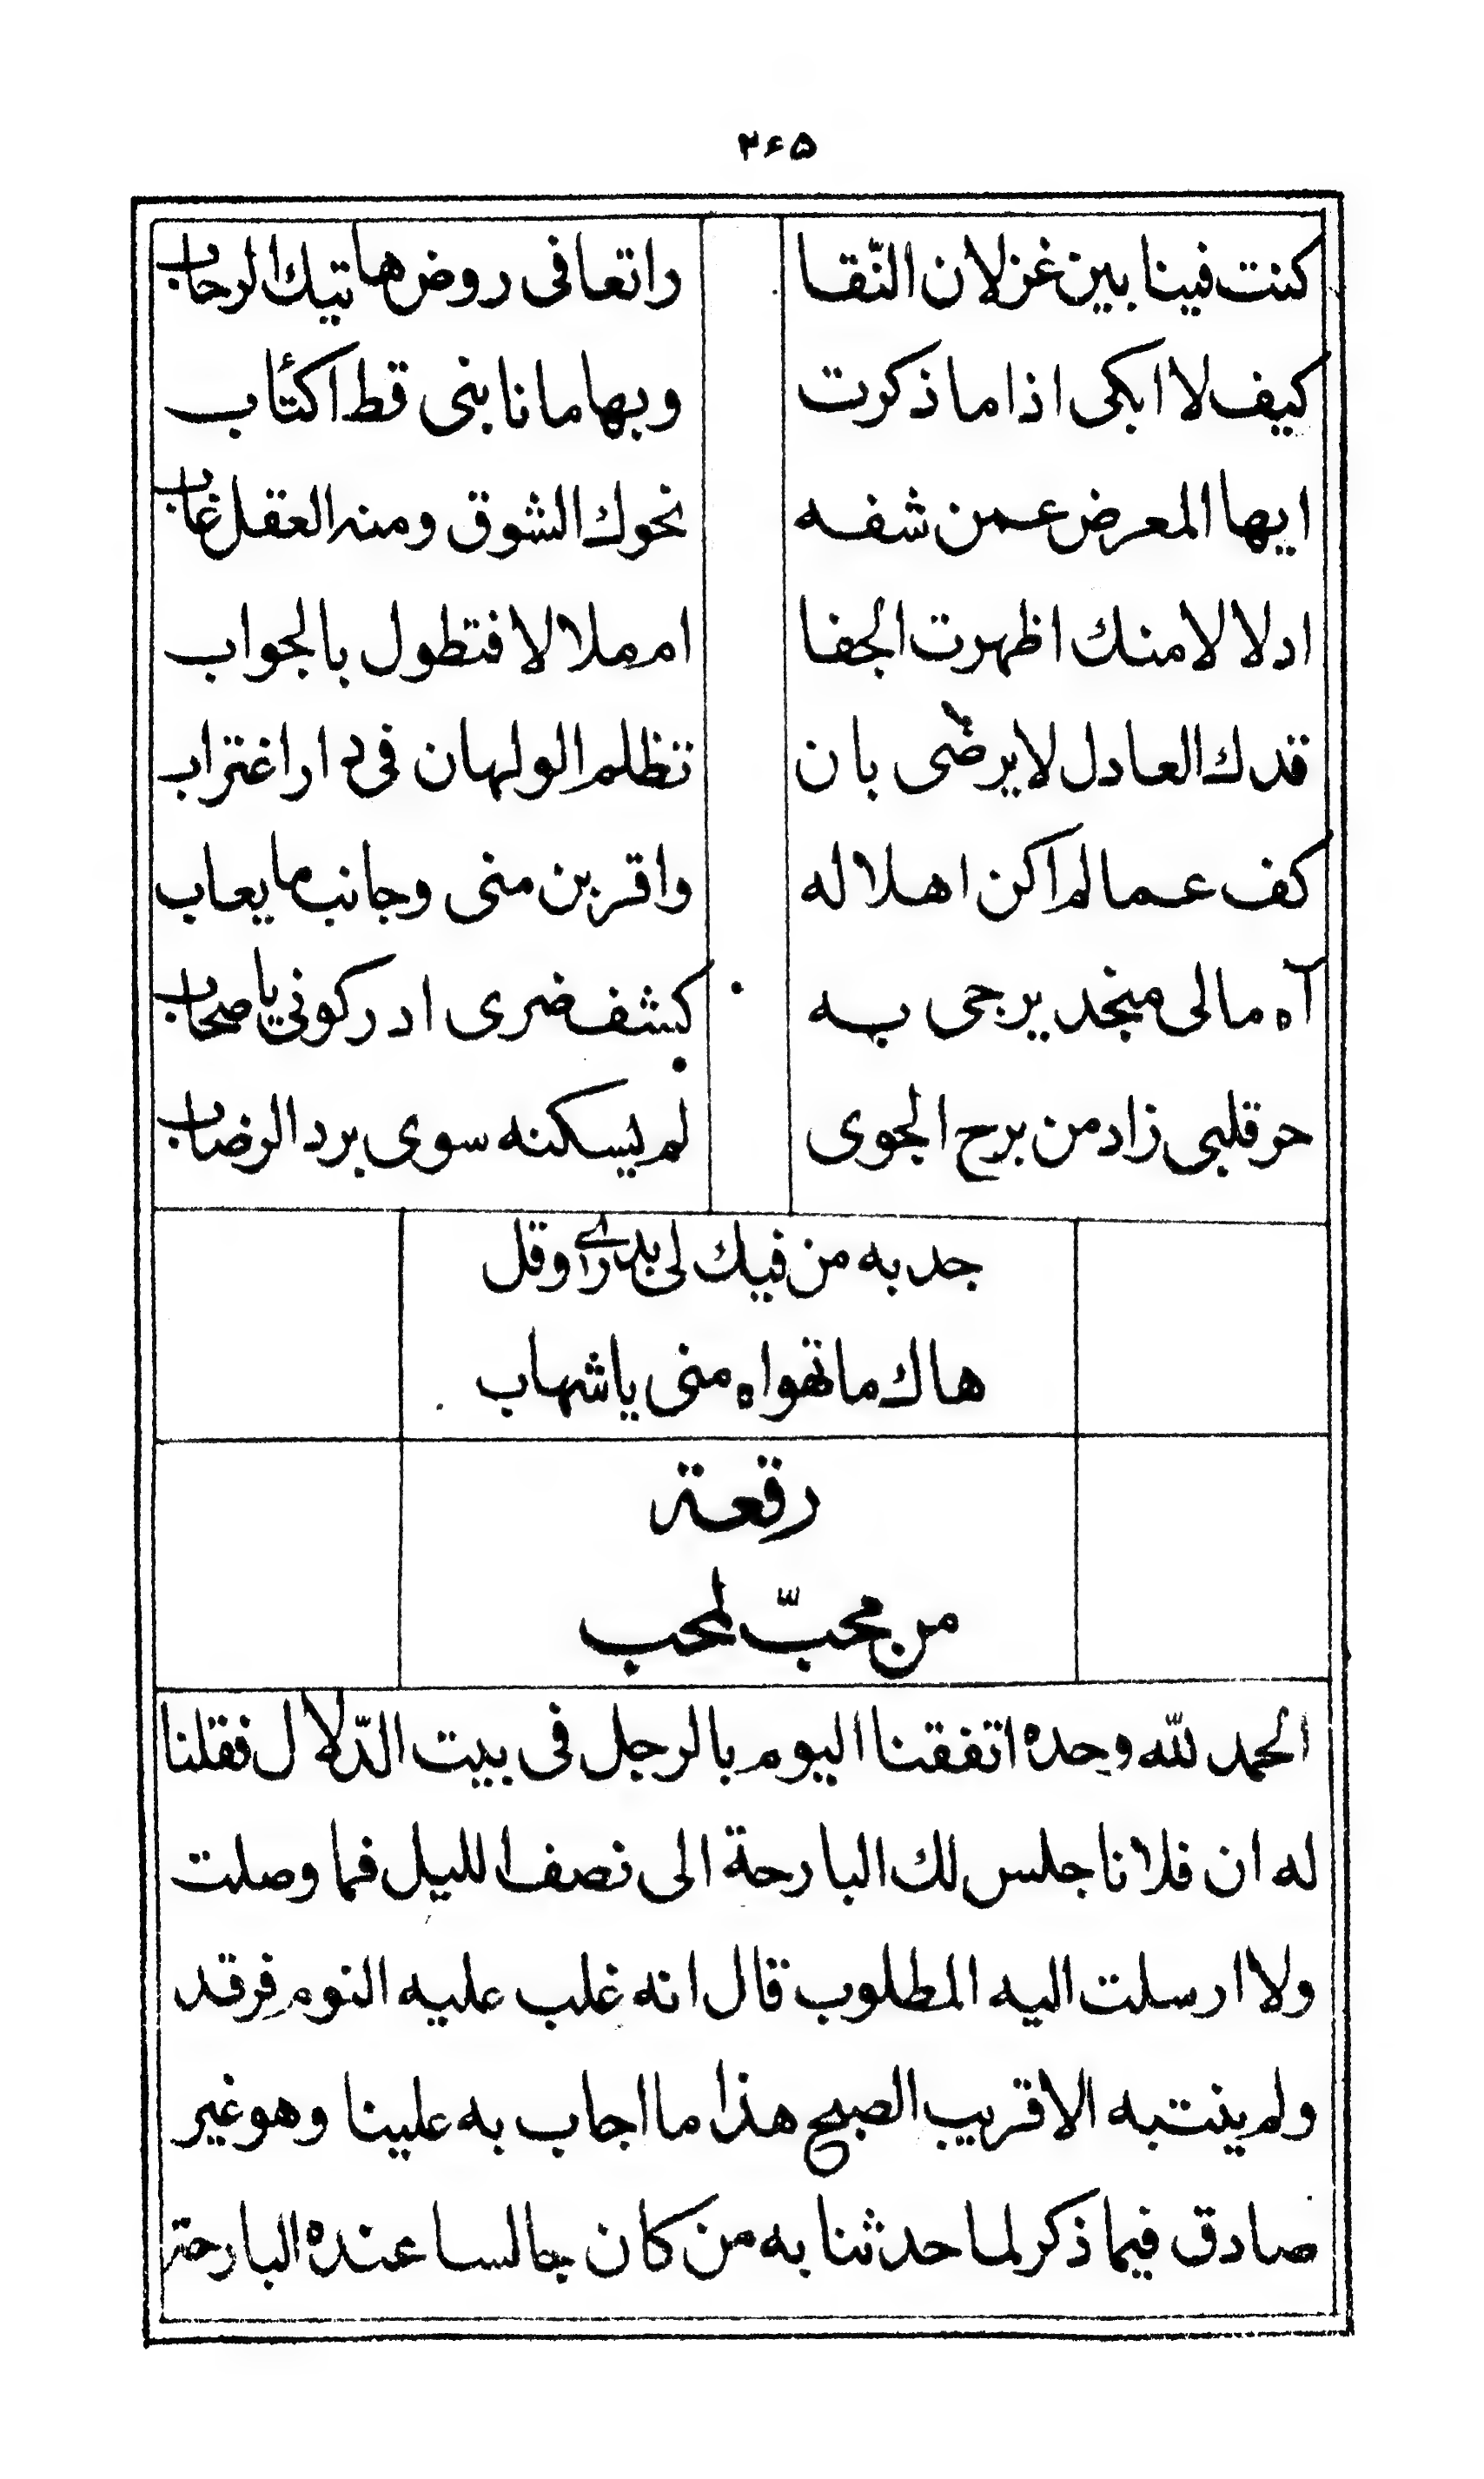 ۲۶۵
كنت فينا بين غزلان النّقا راتعا فى روض هاتيك الرحاب
كيف لا ابكى اذا ما ذكرت وبها ما نابنى قط اكتئاب
ايها المعرض عمن شفه نحوك الشوق ومنه العقل غاب
ادلالا منك اظهرت الجفا ام ملالا فتطول بالجواب
قدك العادل لا يرضى بان تظلم الولهان فى دار اغتراب
كف عما لم اكن اهلا له واقربن منى وجانب ما يعاب
آه مالى منجد يرجى به كشف ضرى ادركونى يا صحاب
حر قلبى زاد من برح الجوى لم يسكنه سوى برد الرضاب
جد به من فيك لى وقل
هاك ما تهواه منى يا شهاب
رقعة
من محبّ لمحب
الحمد لله وحده اتفقنا اليوم بالرجل فى بيت الدّلال فقلنا
له ان فلانا جلس لك البارحة الى نصف الليل فما وصلت
ولا ارسلت اليه المطلوب قال انه غلب عليه النوم فرقد
ولم ينتبه الا قريب الصبح هذا ما اجاب به علينا وهو غير
صادق فيما ذكر لما حدثنا به من كان جالسا عنده البارحة